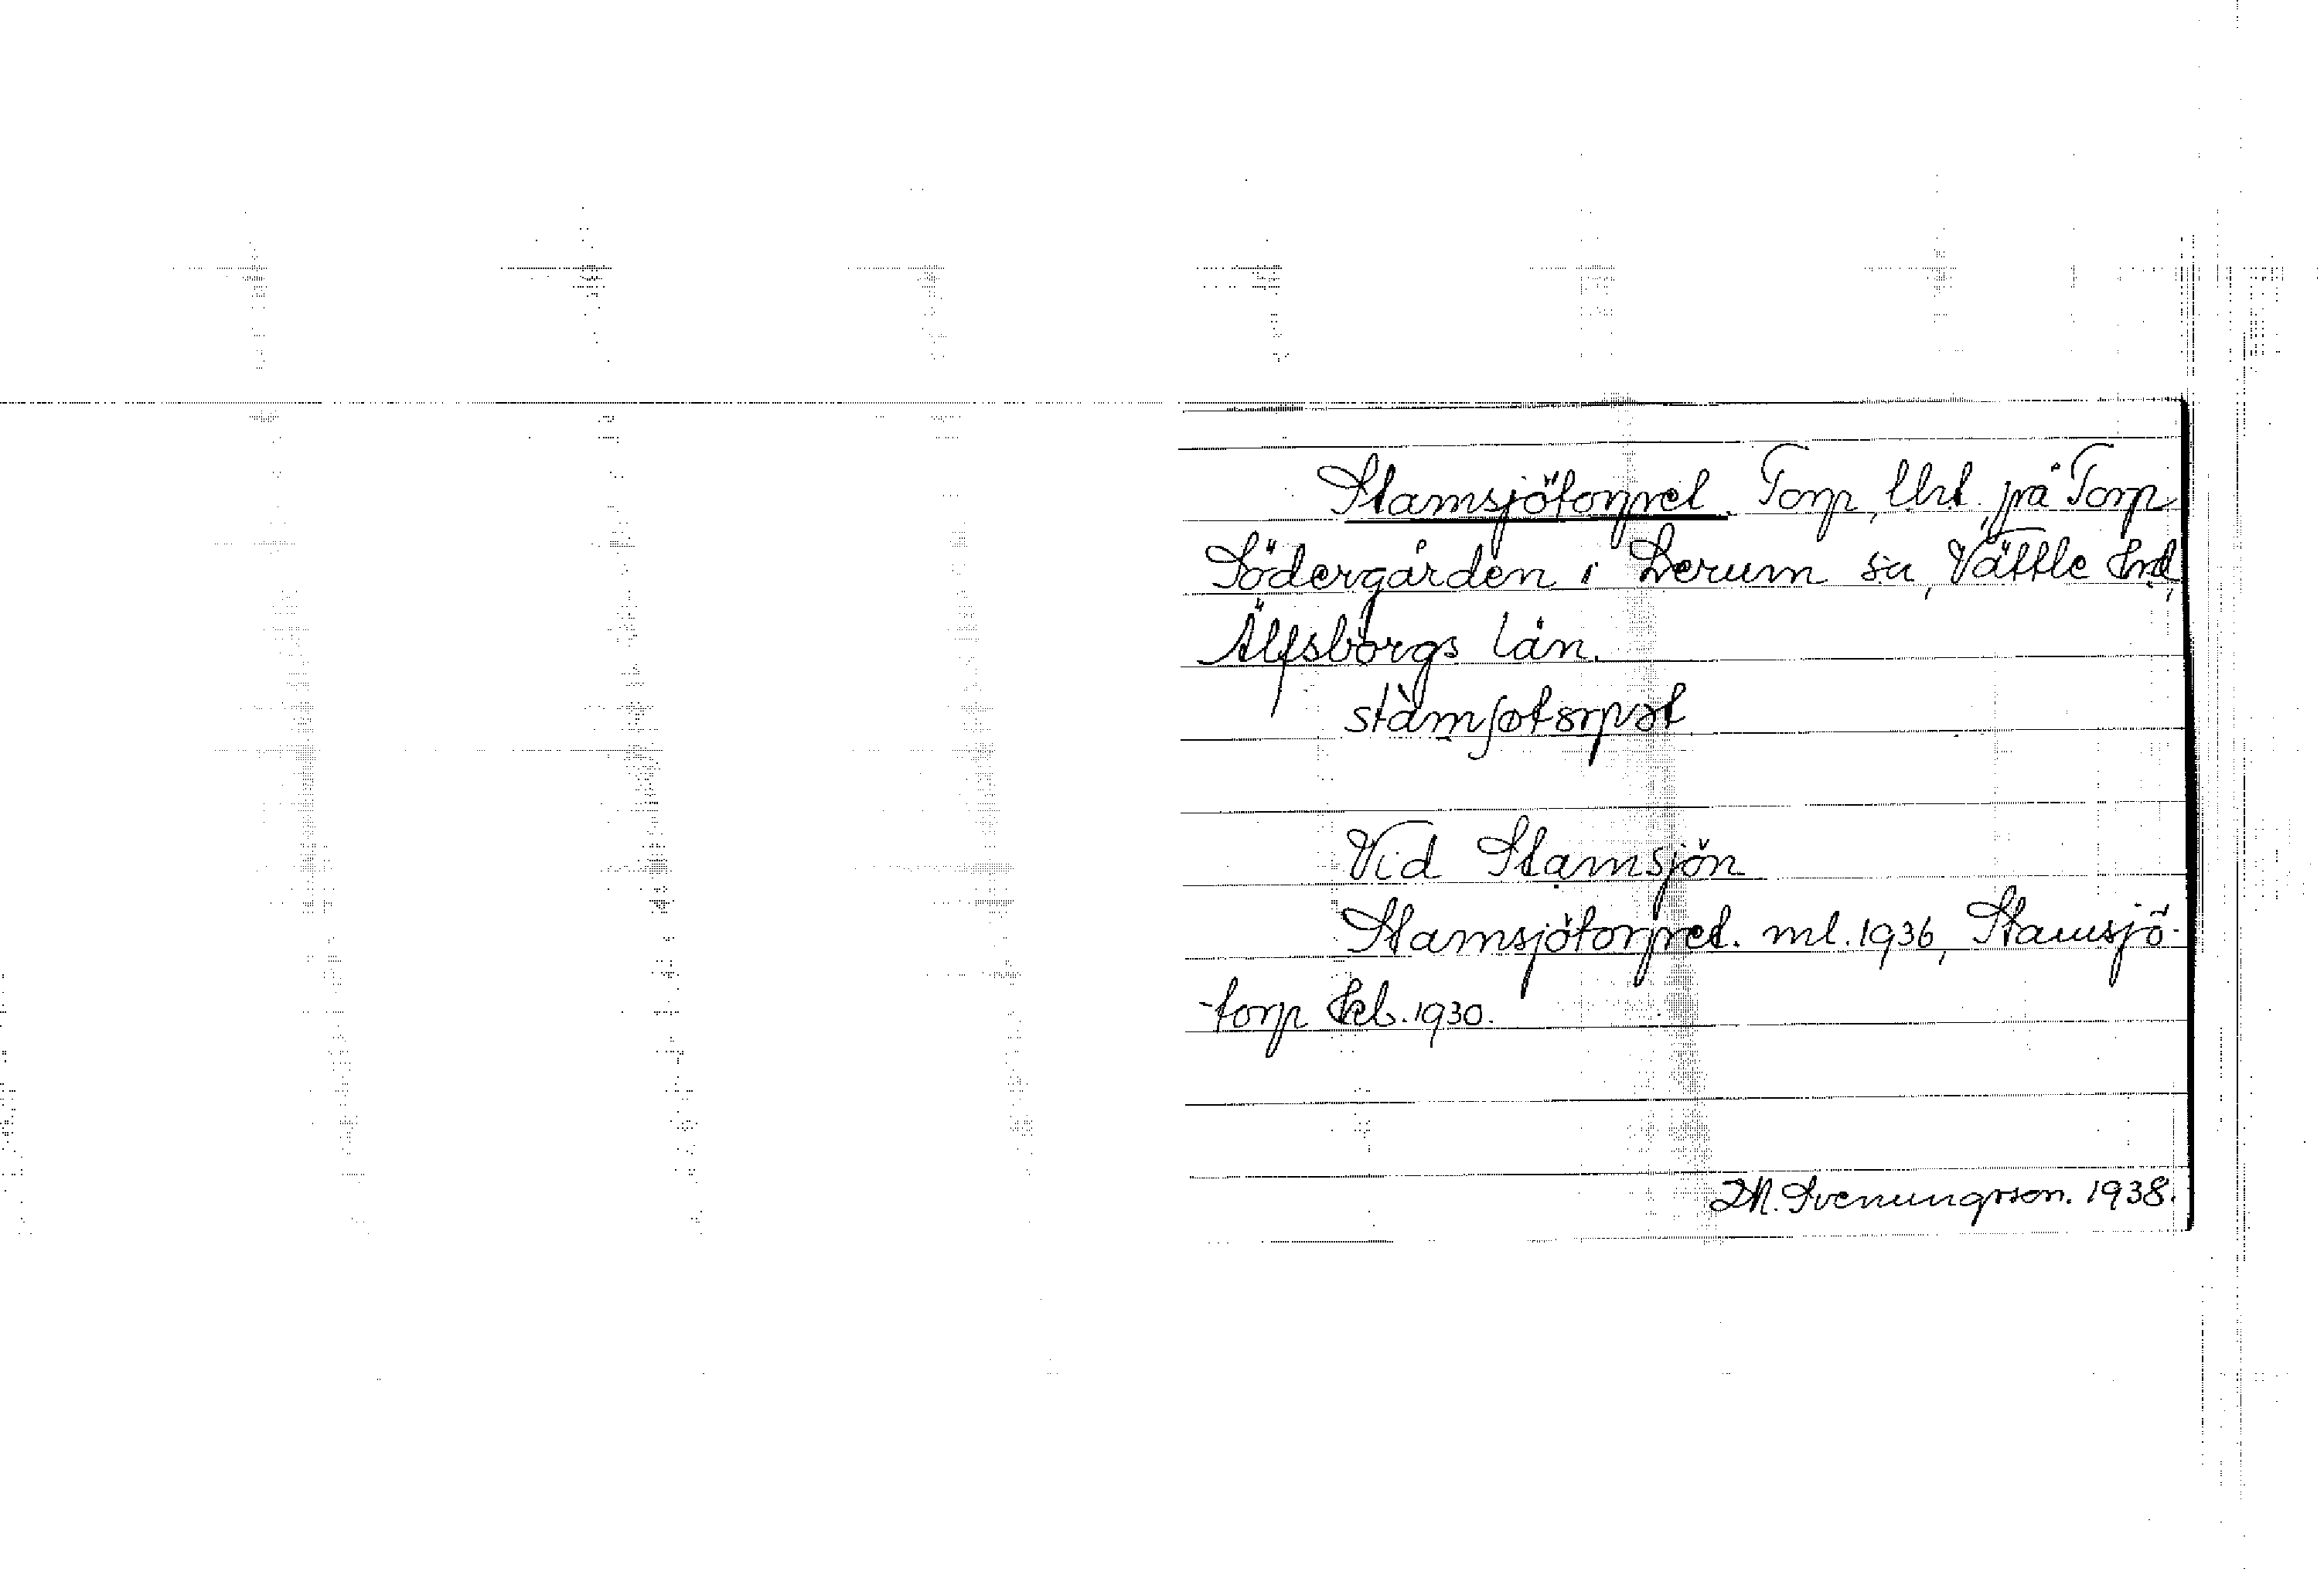 Stamsjötorpet. Torp, Uht, på Torp
Södergården i Lerum sn, Vättle hd,
Älfsborgs län.
stàmʃøtorpət
Vid Stamsjön
Stamsjötorpet. ml. 1936, Stamsjö-
-torp Jeb. 1930.
M. Svenungsson. 1938.